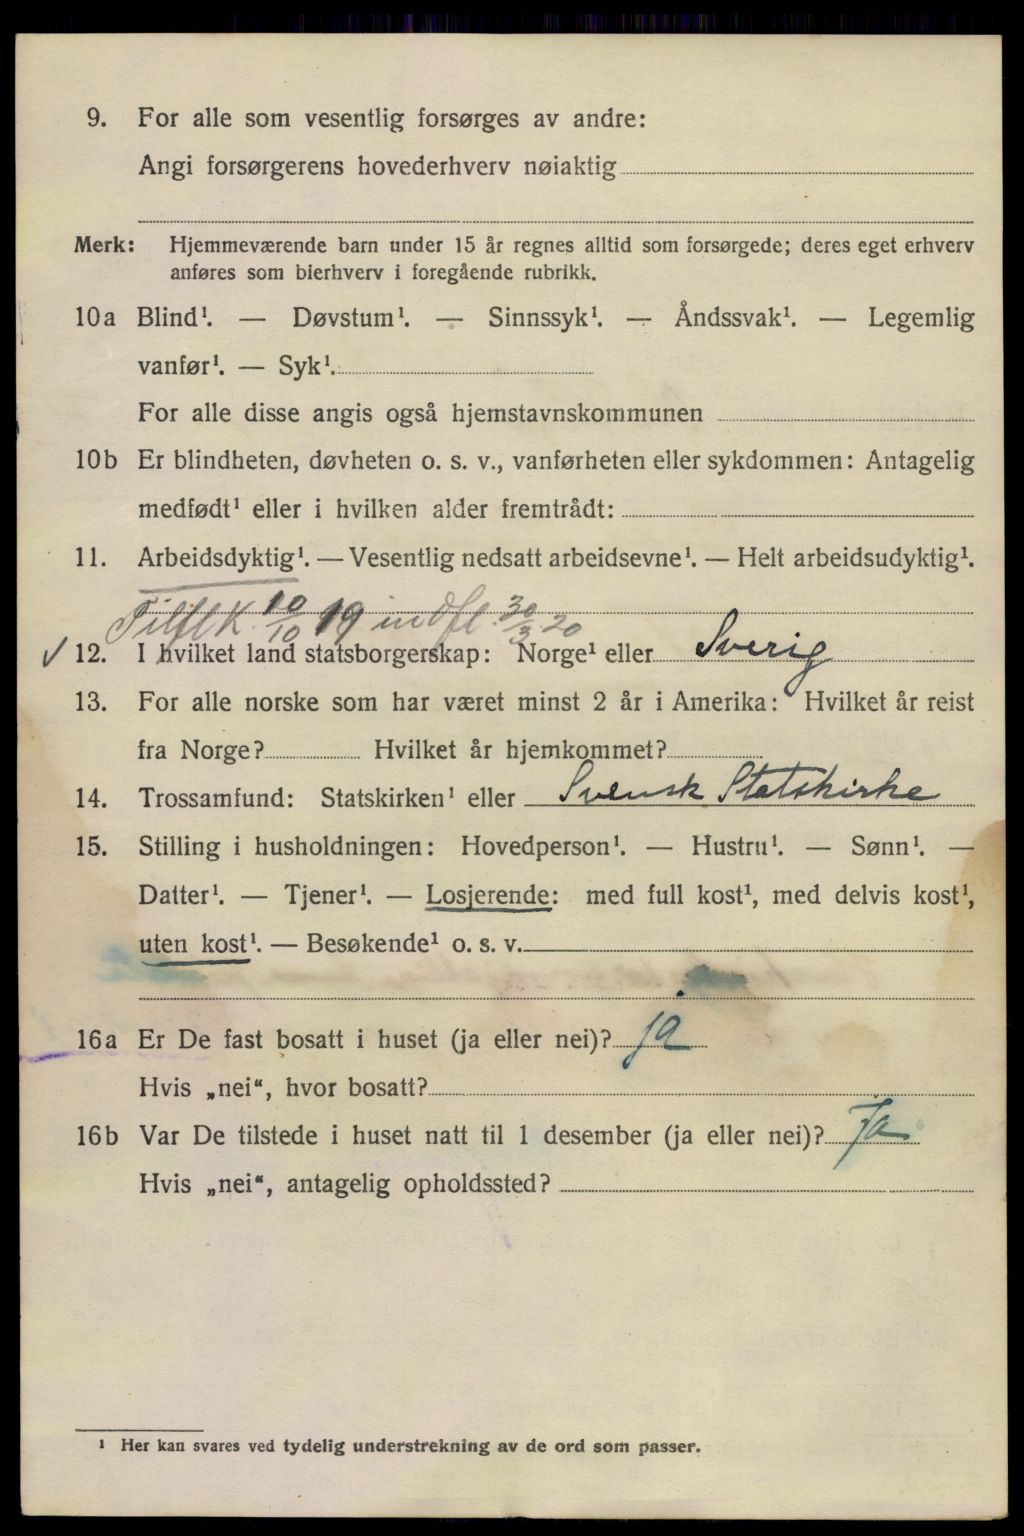 9. For alle som vesentlig forsørges av andre:
Angi forsørgerens hovederhverv nøiaktig
Merk: Hjemmeværende barn under 15 år regnes alltid som forsørgede; deres eget erhverv
anføres som bierhverv i foregående rubrikk.
10a Blind¹. — Døvstum¹. — Sinnssyk¹. — Åndssvak¹. — Legemlig
vanfør¹. — Syk¹.
For alle disse angis også hjemstavnskommunen
10b Er blindheten, døvheten o. s. v., vanførheten eller sykdommen: Antagelig
medfødt¹ eller i hvilken alder fremtrådt:
11. Arbeidsdyktig¹. — Vesentlig nedsatt arbeidsevne¹. — Helt arbeidsudyktig¹.
10/10 19 indfl. 30/3 20
✓ 12. I hvilket land statsborgerskap: Norge¹ eller Sverig
13. For alle norske som har været minst 2 år i Amerika: Hvilket år reist
fra Norge? Hvilket år hjemkommet?
14. Trossamfund: Statskirken¹ eller Svensk Statskirke
15. Stilling i husholdningen: Hovedperson¹. — Hustru¹. — Sønn¹. —
Datter¹. — Tjener¹. — Losjerende: med full kost¹, med delvis kost¹,
uten kost¹. — Besøkende¹ o. s. v.
16a Er De fast bosatt i huset (ja eller nei)? ja
Hvis „nei“, hvor bosatt?
16b Var De tilstede i huset natt til 1 desember (ja eller nei)? Ja
Hvis „nei“, antagelig opholdssted?
¹ Her kan svares ved tydelig understrekning av de ord som passer.